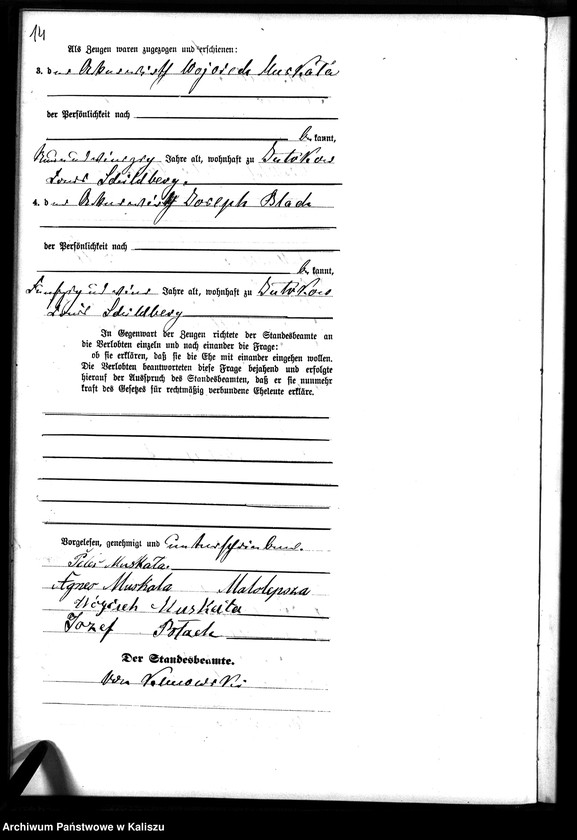 14
Als Zeugen waren zugezogen und erschienen:
3. der Ackerwirth Wojciech Muskała
der Persönlichkeit nach
be kannt,
Jahre alt, wohnhaft zu
Kreis Schildberg.
4. der Ackerwirth Joseph Polach
der Persönlichkeit nach
be kannt,
Jahre alt, wohnhaft zu
Kreis Schildberg
In Gegenwart der Zeugen richtete der Standesbeamte an
die Verlobten einzeln und nach einander die Frage:
ob sie erklären, daß sie die Ehe mit einander eingehen wollen.
Die Verlobten beantworteten diese Frage bejahend und erfolgte
hierauf der Ausspruch des Standesbeamten, daß er sie nunmehr
kraft des Gesetzes für rechtmäßig verbundene Eheleute erkläre.
Vorgelesen, genehmigt und unterschrieben.
Peter Muskała.
Agnes Muskala Malolepsza
Wojciech Muskała
Jozef Polach
Der Standesbeamte.
von
Archiwum Państwowe w Kaliszu